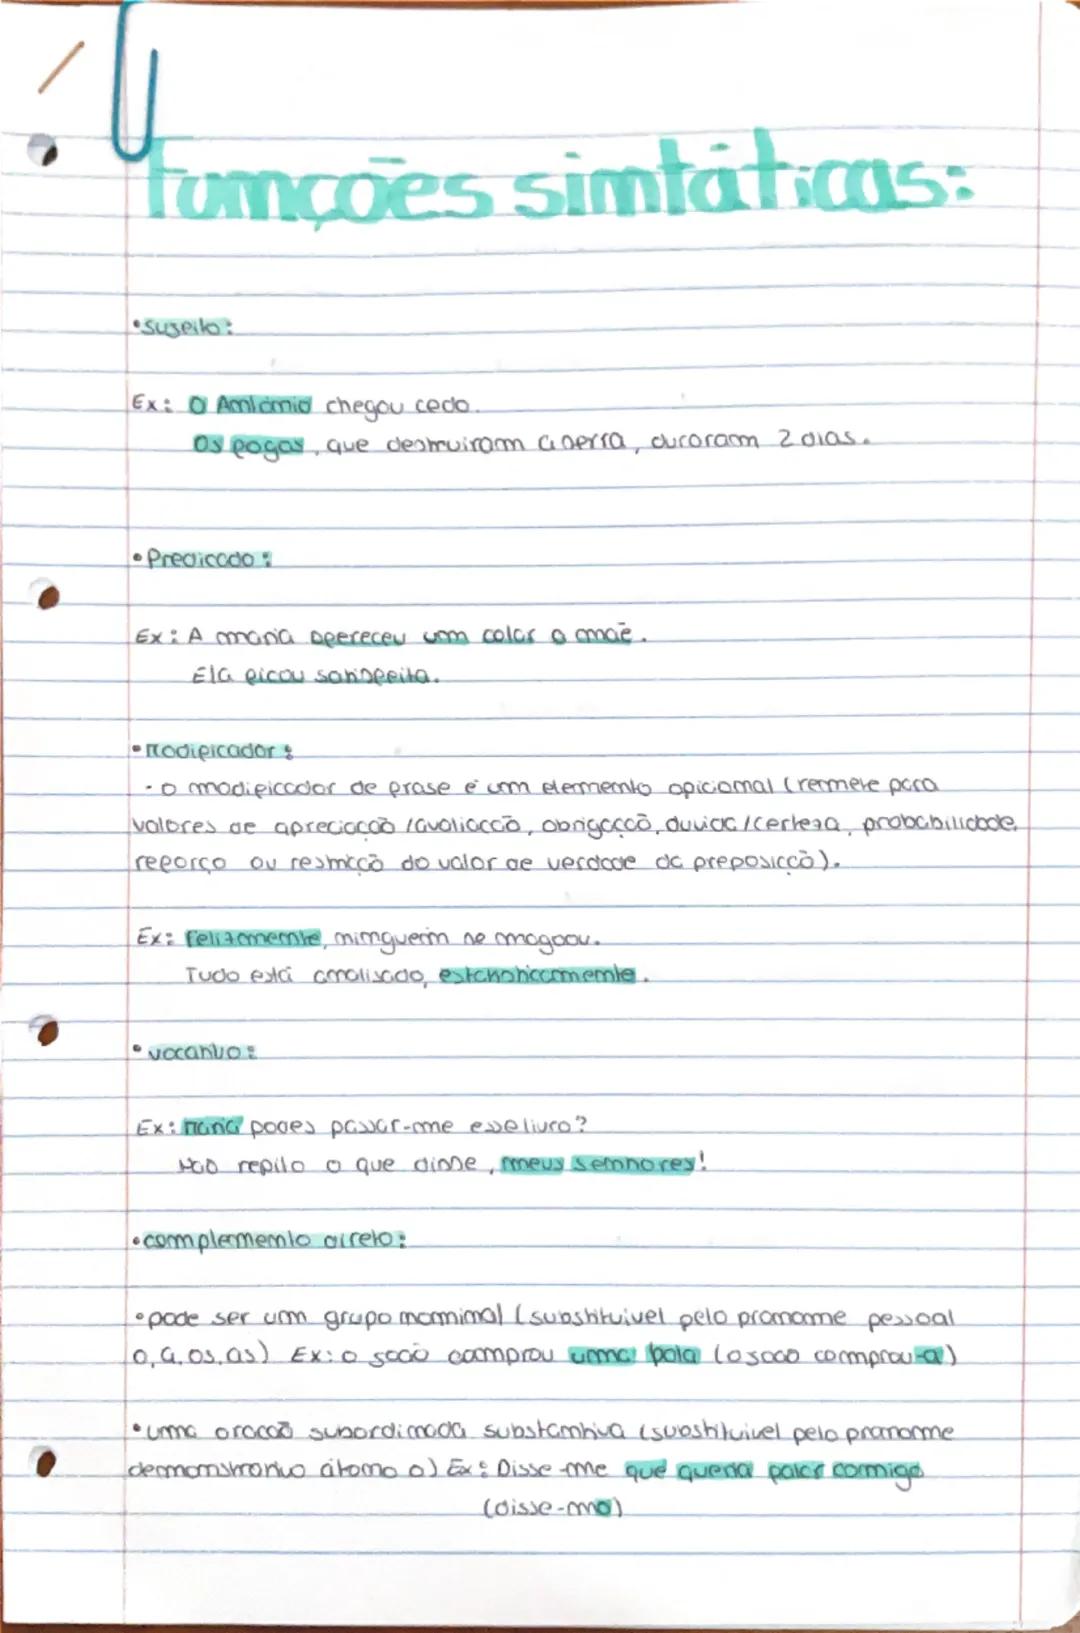 Funções sintáticas:
•Sujeito:
Ex: O António chegou cedo.
Os fogos, que destruiram a serra, duraram 2 dias.
• Predicado:
Ex: A maria ofereceu um colar a mãe.
Ela ficou satisfeita.
•Modificador:
- O modificador de frase é um elemento opicional (remete para
valores de apreciação/avaliação, obrigação, duvida/certeza, probabilidade,
reforço ou restrição do valor de verdade da preposição).
Ex: Felizmente, ninguem se magoou.
Tudo está analisado, estatisticamente.
• vocativo:
Ex: Maria podes passar-me esse livro?
Não repito o que disse, meus senhores!
•complemento direto:
•pode ser um grupo nominal (substituivel pelo pronome pessoal
o, a, os, as) Ex: O João comprou uma bola (O João comprou-a)
•uma oração subordinada substantiva (substituivel pelo pronome
demonstrativo átomo o) Ex: Disse-me que queria falar comigo
(disse-mo)